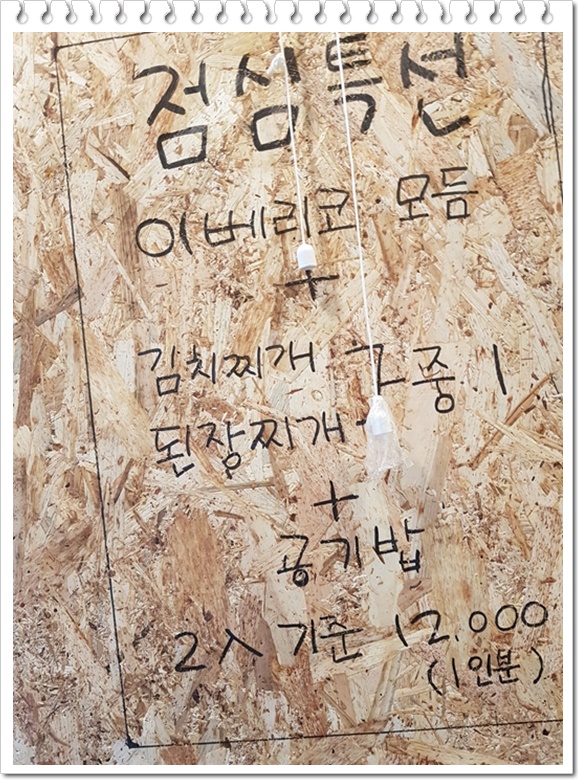 점심특선
이베리코 모듬
+
김치찌개 중 1
된장찌개
+
공기밥
2人 기준 12,000
(1인분)